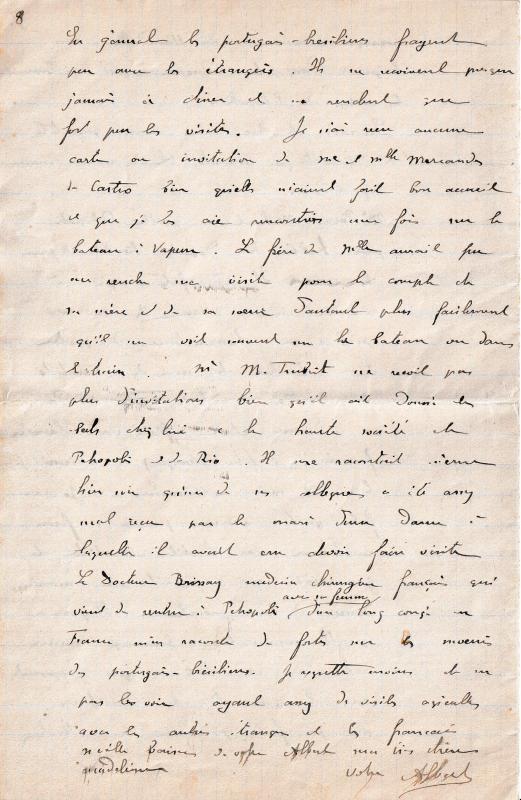 8
En général les portugais-brésiliens frayent
peu avec les étrangers. Ils ne reçoivent presque
jamais à diner et ne rendent que
fort peu les visites. Je n'ai reçu aucune
carte ou invitation de me et mlle
de Castro bien qu'elles m'aient fait bon accueil
et que je les aie rencontrées une fois sur le
bateau à vapeur. Le frère de Mlle aurait pu
me rendre ma visite pour le compte de
sa mère et de sa soeur d'autant plus facilement
qu'il me voit souvent sur le bateau ou dans
le train. M. ne reçoit pas
plus d'invitations bien qu'il ait donné des
bals chez lui à la haute société de
Pétropolis et de Rio. Il me racontait même
hier soir qu'un de ses collègues a été assez
mal reçu par le mari d'une dame à
laquelle il avait cru devoir faire visite
Le Docteur Brissay médecin chirurgien français qui
vient de rentrer à Pétropolis avec sa femme d'un long congé en
France m'en raconte de fortes sur les moeurs
des portugais-brésiliens. Je regrette moins de ne
pas les voir ayant assez de visites agréables
avec les autres étrangers et les français
mille baisers de votre Albert ma très chère
Madeleine
votre Albert